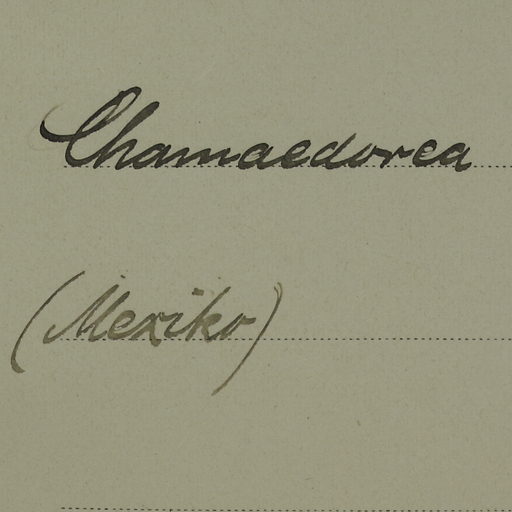 Chamaedorea
(Mexiko)